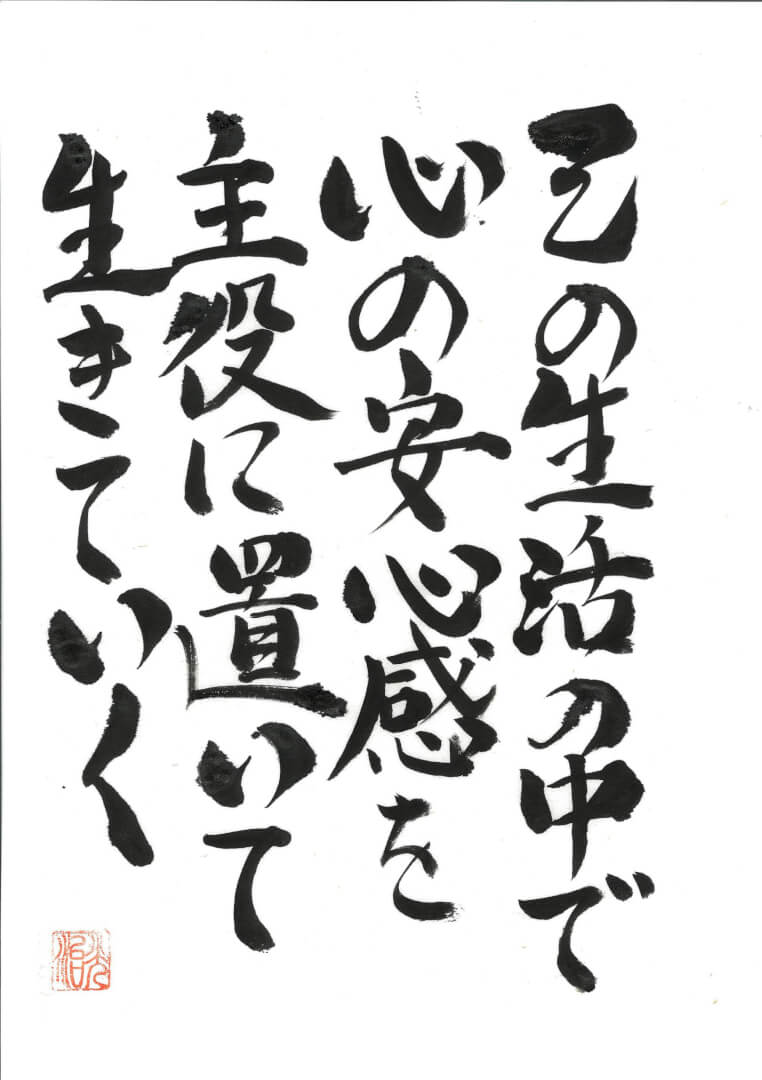 己の生活の中で
心の安心感を
主役に置いて
生きていく